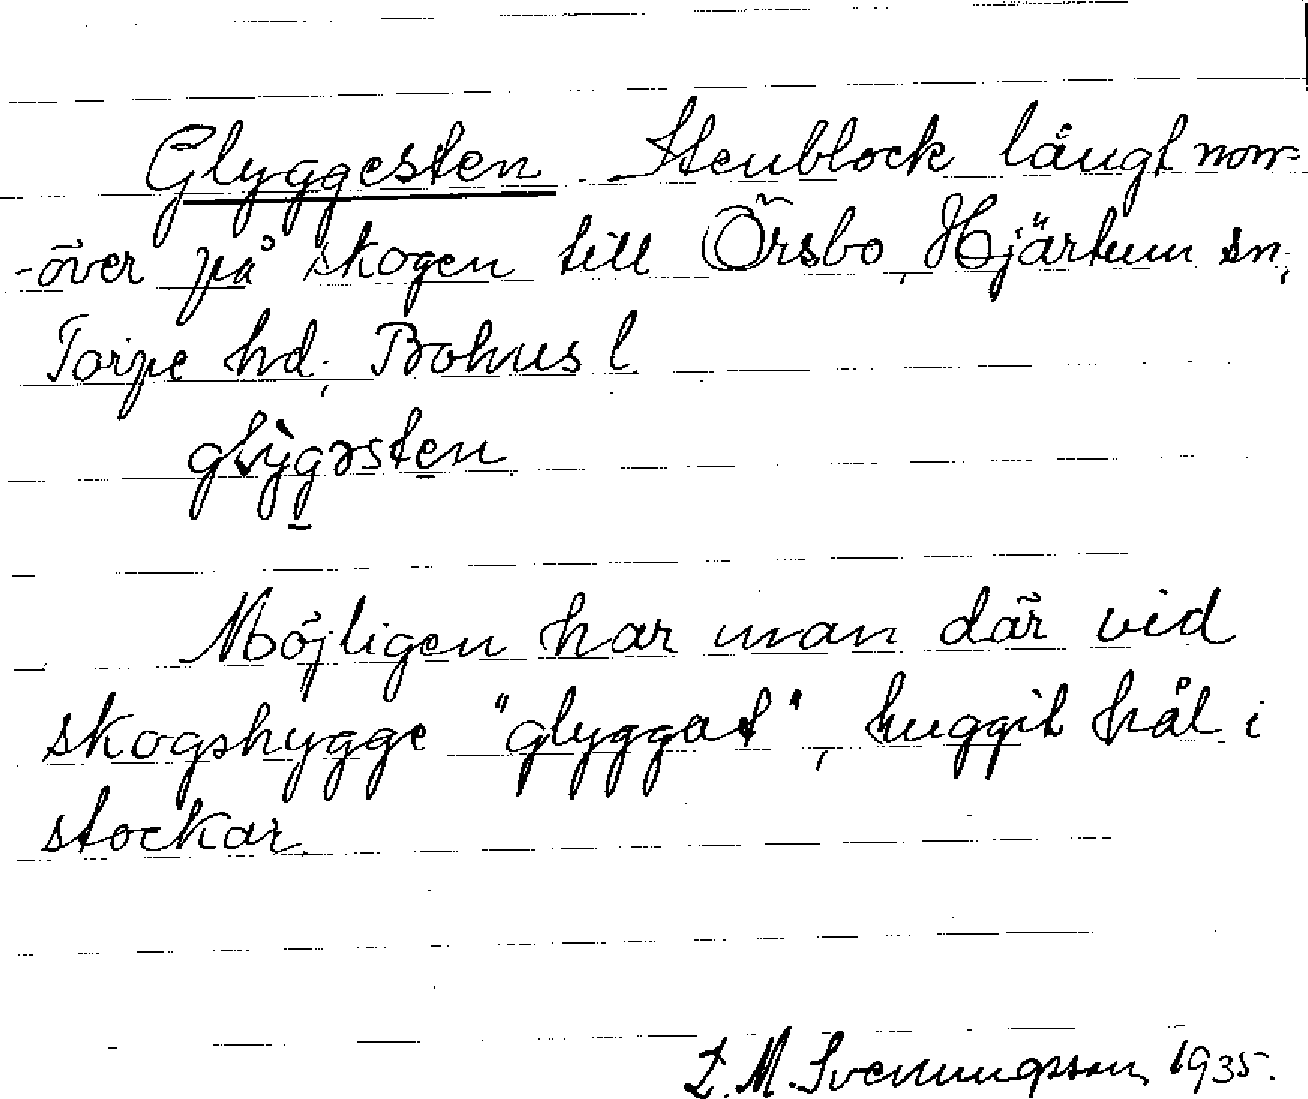 Glyggesten Stenblock långt norr-
-över på skogen till Örsbo, Hjärtum sn,
Torpe hd, Bohus l.
glỳgəsten
Möjligen har man där vid
skogshygge "glyggat", huggit hål i
stockar.
L. M. Svenungsson 1935.